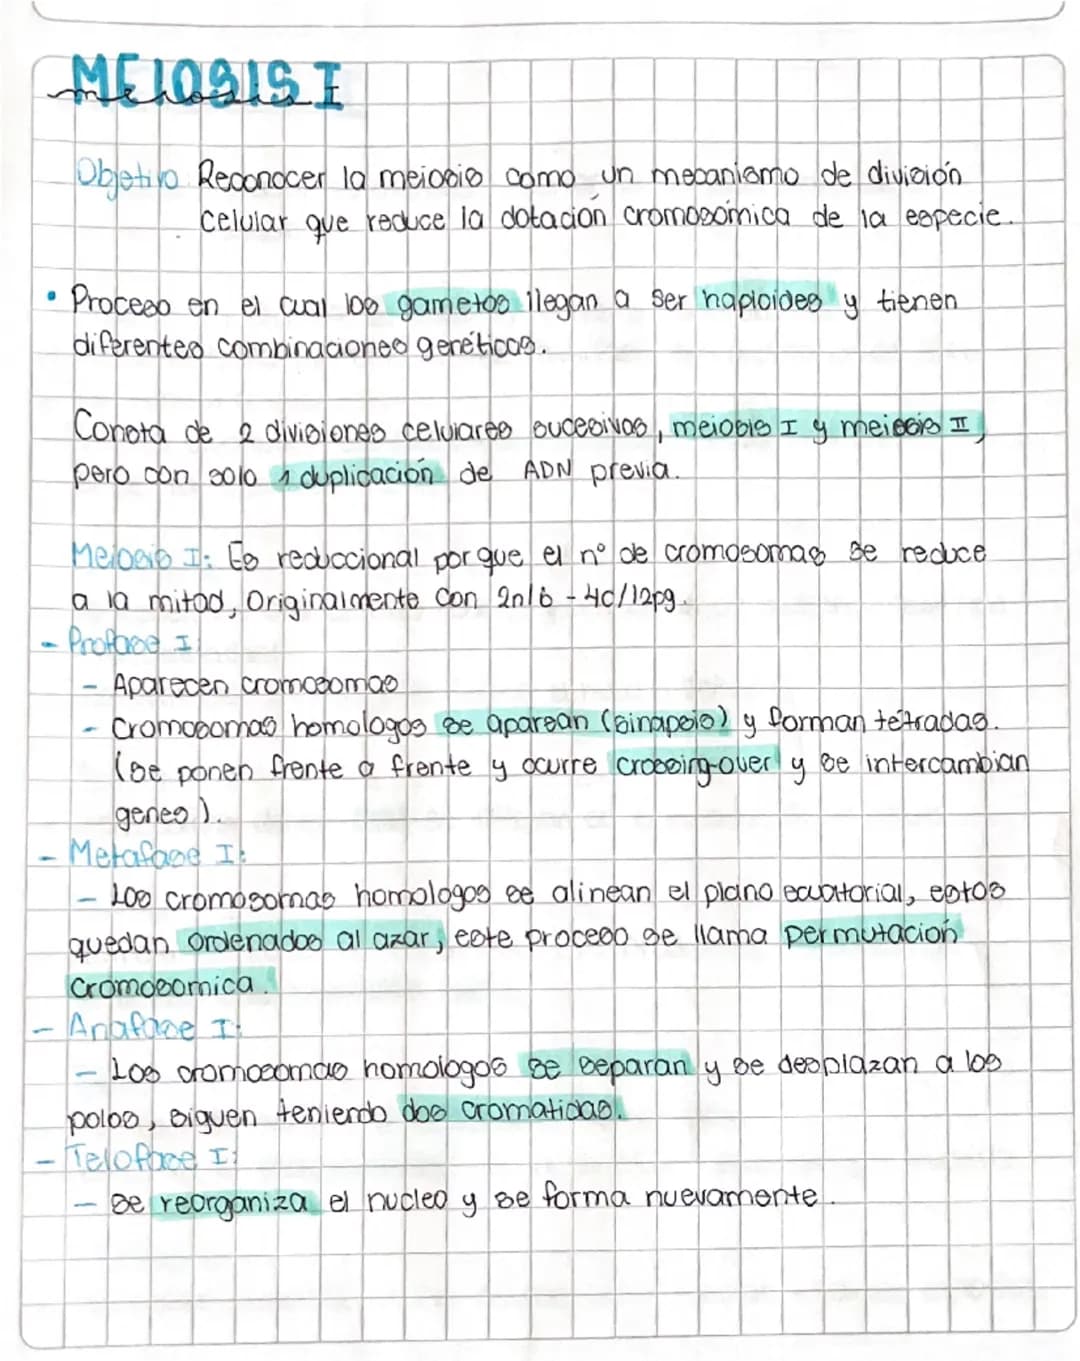 MEIOSIS I
meiosis
Objetivo Reconocer la meiosis como un mecanismo de división
celular que reduce la dotación cromosómica de la especie.
• Proceso en el cual los gametos llegan a ser haploides y tienen
diferentes combinaciones genéticas.
Consta de 2 divisiones celulares sucesivas, meiosis I y meiosis II,
pero con solo 1 duplicación de ADN previa.
Meiosis I: Es reduccional porque el nº de cromosomas se reduce
a la mitad, Originalmente con 2n/6 - 4c/12pg.
- Profase I
- Aparecen cromosomas
- Cromosomas homologos se aparean (sinapsis) y forman tétradas.
(se ponen frente a frente y ocurre crossing-over y se intercambian
genes).
- Metafase I:
- Los cromosomas homologos se alinean el plano ecuatorial, estos
quedan ordenados al azar, este proceso se llama permutación
cromosomica.
- Anafase I:
- Los cromosomas homologos se separan y se desplazan a los
polos, siguen teniendo dos cromatidas.
- Telofase I:
- Se reorganiza el nucleo y se forma nuevamente.